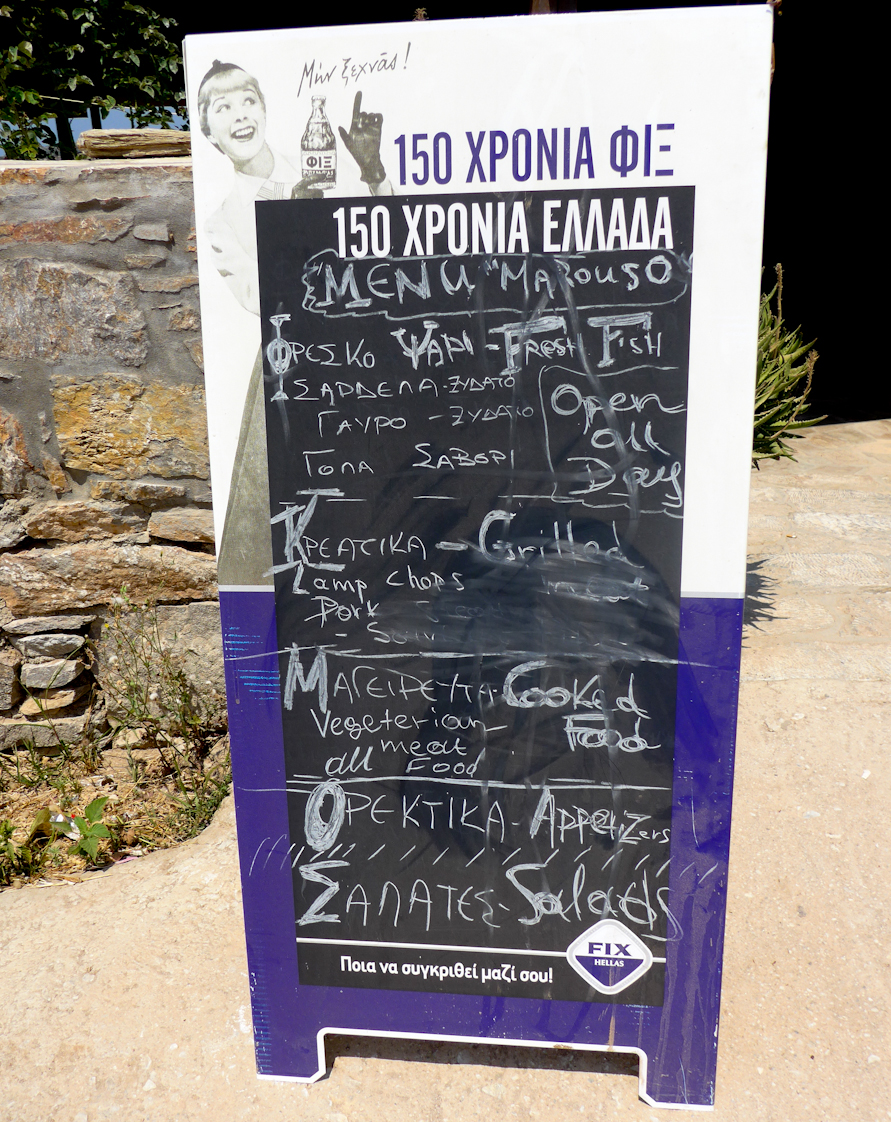 Μήν ξεχνᾶς!
ΦΙΞ
150 ΧΡΟΝΙΑ ΦΙΞ
150 ΧΡΟΝΙΑ ΕΛΛΑΔΑ
MENU "MAROUSO
ΦΡΕΣΚΟ ΨΑΡΙ - FRESH FISH
ΣΑΡΔΕΛΑ - ΞΥΔΑΤΟ
ΓΑΥΡΟ - ΞΥΔΑΤΟ
ΓΟΠΑ ΣΑΒΟΡΙ
Open
all
Day
ΚΡΕΑΤΙΚΑ - Grilled
Lamp chops meat
Pork
ΜΑΓΕΙΡΕΥΤΑ - Cooked
Vegeterian - Food
all meat
Food
ΟΡΕΚΤΙΚΑ - Appetizers
ΣΑΛΑΤΕΣ - Salads
FIX
HELLAS
Ποια να συγκριθεί μαζί σου!